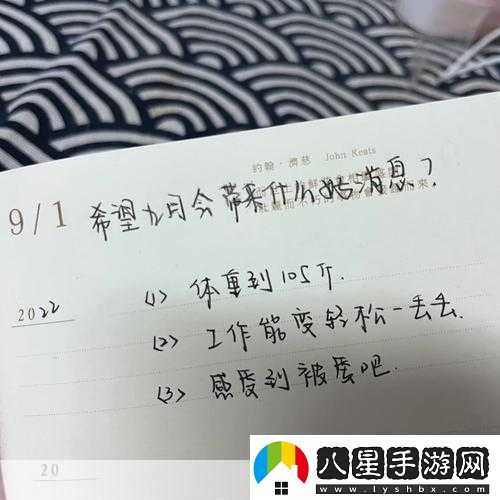 約翰·濟慈 John Keats
9/1 希望九月会带来什么好消息？
2022
(1) 体重到105斤.
(2) 工作能变轻松一丢丢.
(3) 感受到被爱吧.
20
八星手游网
www.lyshbx.com